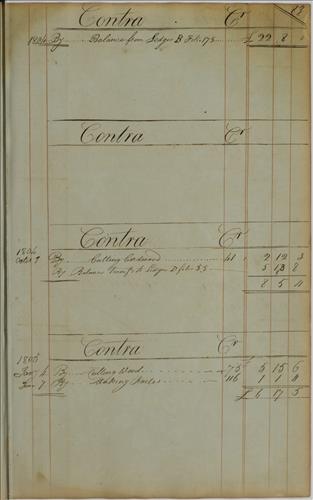 83
Contra Cr
1804 By Balance from Ledger B Folio 175 £ 22 8
Contra Cr
Contra Cr
1804
By Cutting Cordwood 41 2 12 3
By Balance Transfd to Ledger D folio 55 5 13 8
8 5 11
Contra Cr
1805
Jany 4 By Cutting Wood 75 5 15 6
Jany 7 By Making 116 1 1
£ 6 17 5